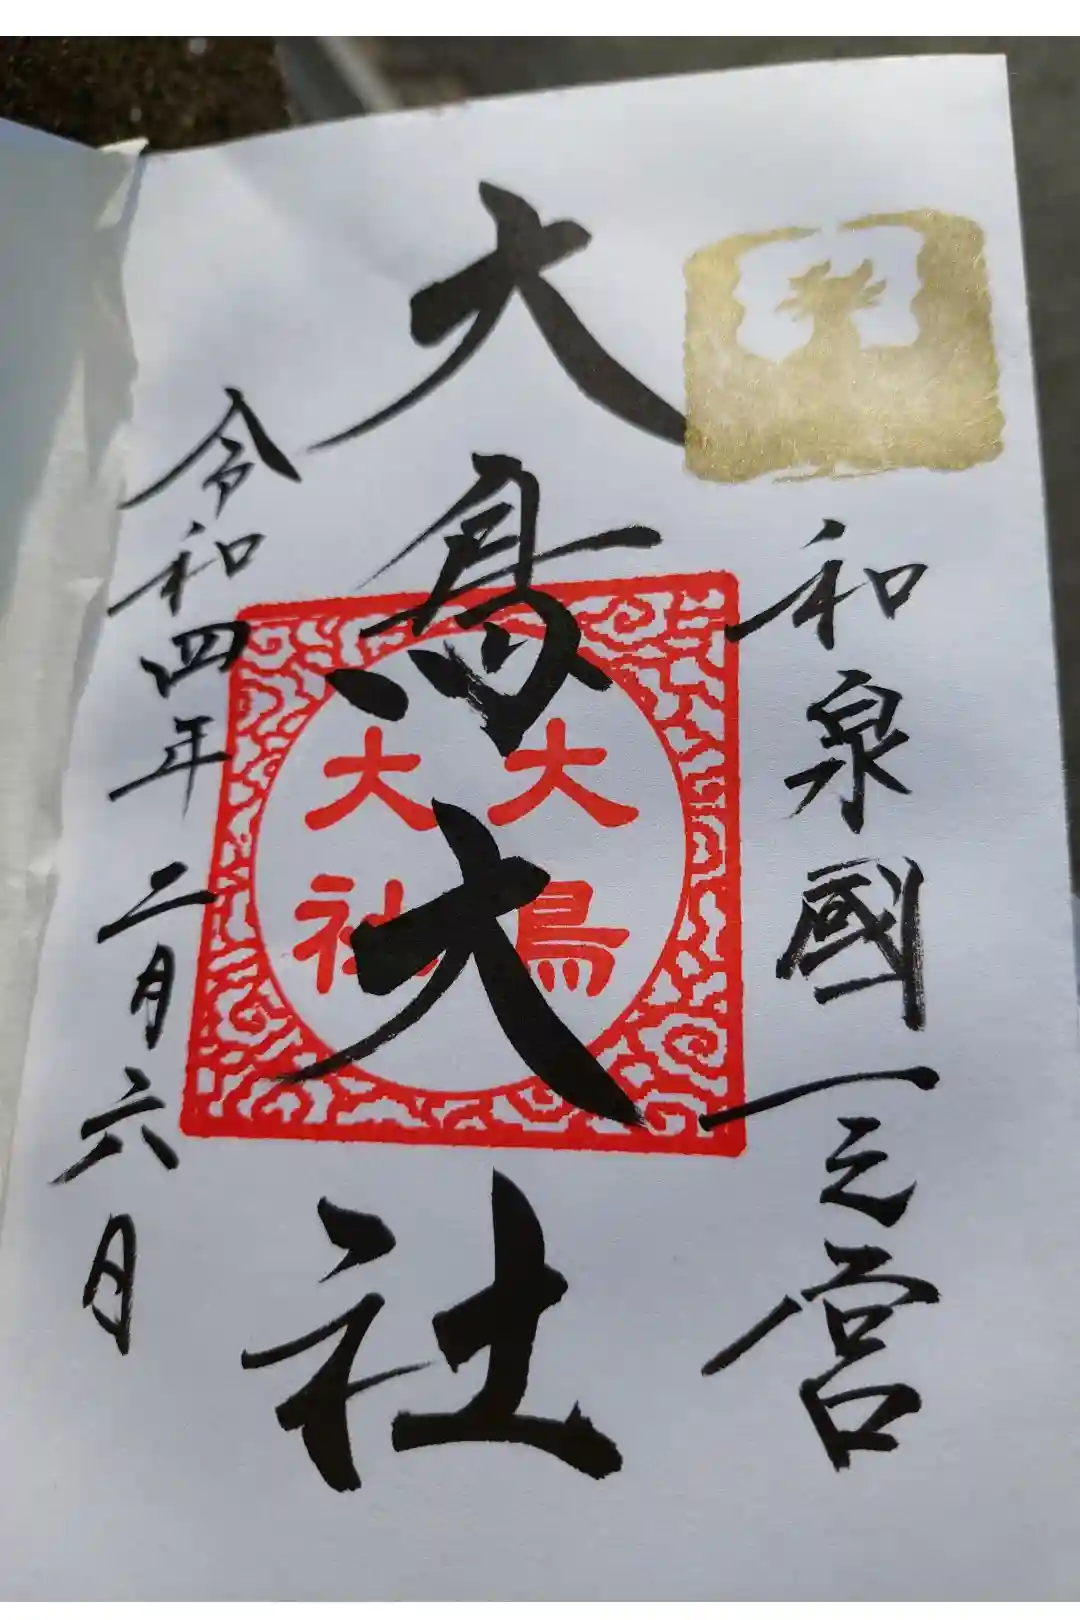 和泉國一之宮
大鳥大社
大鳥
大社
令和四年二月六月